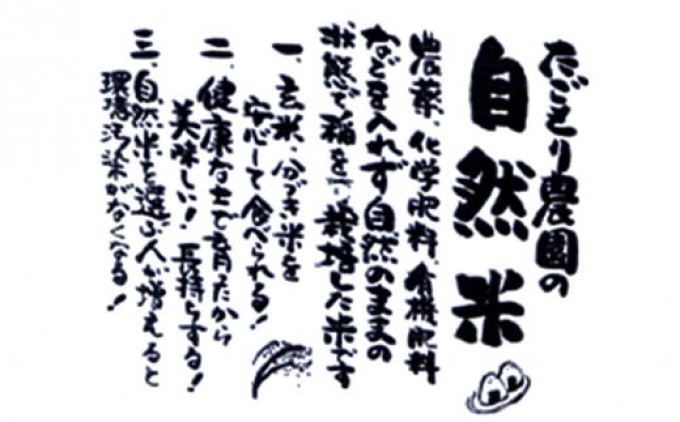 たごえり農園の
自然米
農薬、化学肥料、有機肥料
などを入れず自然のままの
状態で稲を栽培した米です
一、玄米、分づき米を
安心して食べられる!
二、健康な土で育ったから
美味しい!長持ちする!
三、自然米を選ぶ人が増えると
環境汚染がなくなる!